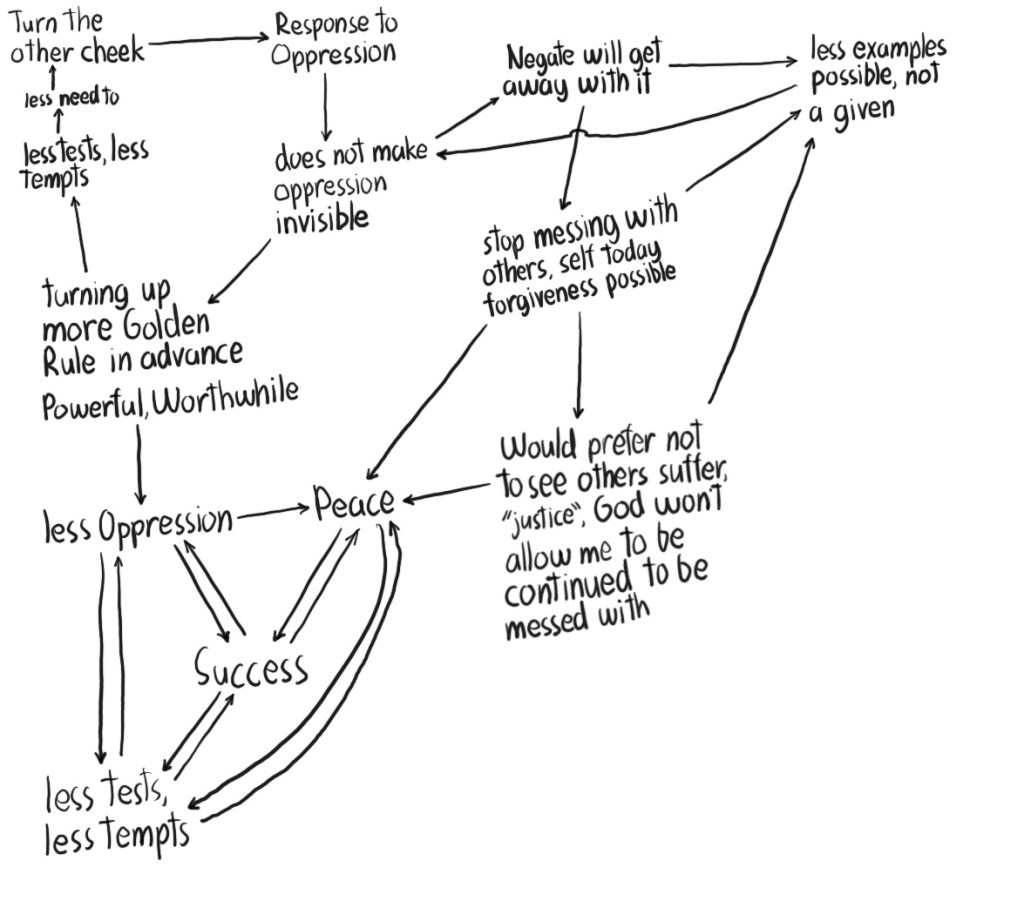 Turn the
other cheek
less need to
less tests, less
tempts
Response to
Oppression
does not make
oppression
invisible
turning up
more Golden
Rule in advance
Powerful, Worthwhile
Negate will get
away with it
less examples
possible, not
a given
stop messing with
others, self today
forgiveness possible
Would prefer not
to see others suffer,
"justice", God won't
allow me to be
continued to be
messed with
less Oppression
Peace
Success
less tests,
less tempts